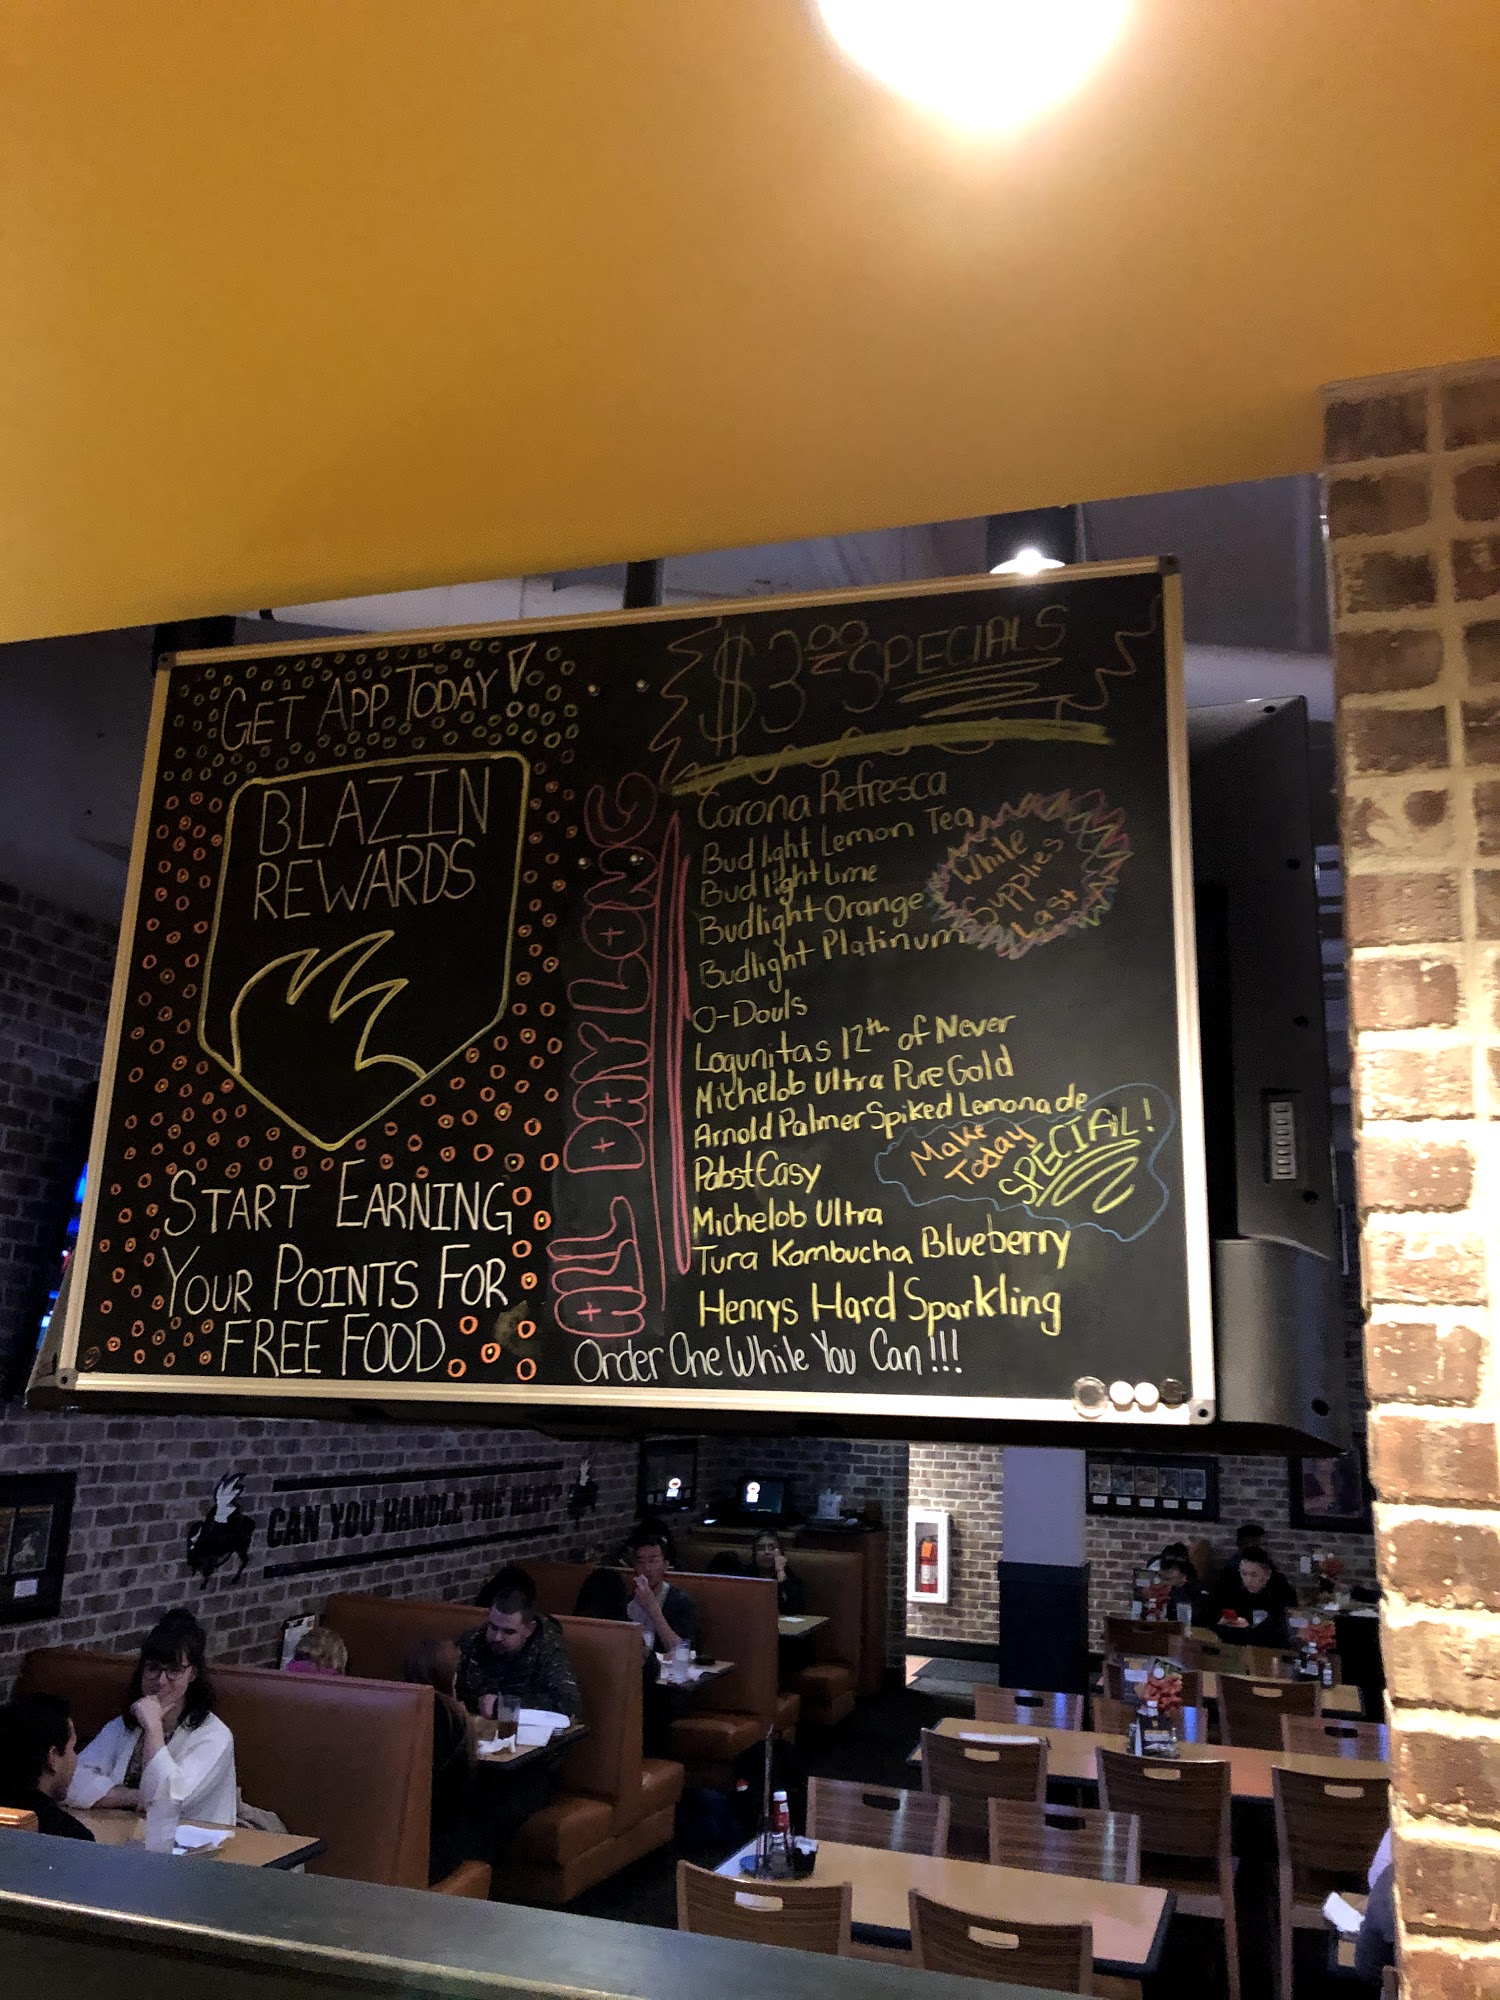 GET APP TODAY!
BLAZIN
REWARDS
START EARNING
YOUR POINTS FOR
FREE FOOD
ALL DAY LONG
$3.00 SPECIALS
Corona Refresca
Bud light Lemon Tea
Bud light Lime
Budlight Orange
Budlight Platinum
While
Supplies
Last
O-Douls
Lagunitas 12th of Never
Michelob Ultra Pure Gold
Arnold Palmer Spiked Lemonade
Pabst Easy
Make
Today
SPECIAL!
Michelob Ultra
Tura Kombucha Blueberry
Henrys Hard Sparkling
Order One While You Can!!!
CAN YOU HANDLE THE HEAT?